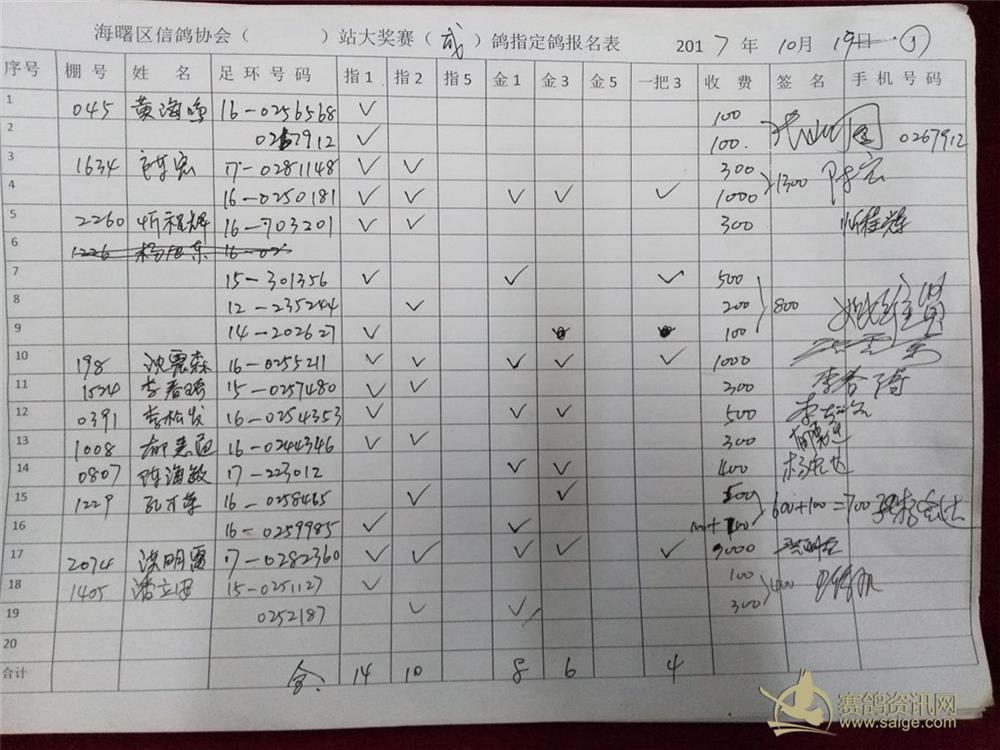 海曙区信鸽协会（ ）站大奖赛（成）鸽指定鸽报名表 2017年 10月 19日 ①
序号 棚号 姓名 足环号码 指1 指2 指5 金1 金3 金5 一把3 收费 签名 手机号码
1 045 黄海 16-0256568 ✓ 100
2 0267912 ✓ 100. 0267912
3 1634 陈宏 17-0281148 ✓ ✓ 300 1300 陈宏
4 16-0250181 ✓ ✓ ✓ ✓ ✓ 1000
5 2260 忻程辉 16-703201 ✓ ✓ 300
6 1226 杨 东 16-02
7 15-301356 ✓ ✓ ✓ 500
8 12-235244 ✓ 200 800
9 14-202627 ✓ 100
10 198 沈震森 16-0255211 ✓ ✓ ✓ ✓ ✓ 1000
11 1524 李春 15-0257480 ✓ ✓ 300
12 0391 李松发 16-0254353 ✓ ✓ ✓ 500
13 1008 16-0244346 ✓ ✓ 300
14 0807 陈海敏 17-223012 ✓ ✓ 400
15 1229 16-0258465 ✓ ✓ 500 600+100=700
16 16-0259985 ✓ ✓
17 2074 洪明雷 17-0282360 ✓ ✓ ✓ ✓ ✓
18 1405 潘立 15-0251127 ✓ 100 400
19 0252187 ✓ ✓ 300
20
合计 合: 14 10 8 6 4
赛鸽资讯网
www.saige.com